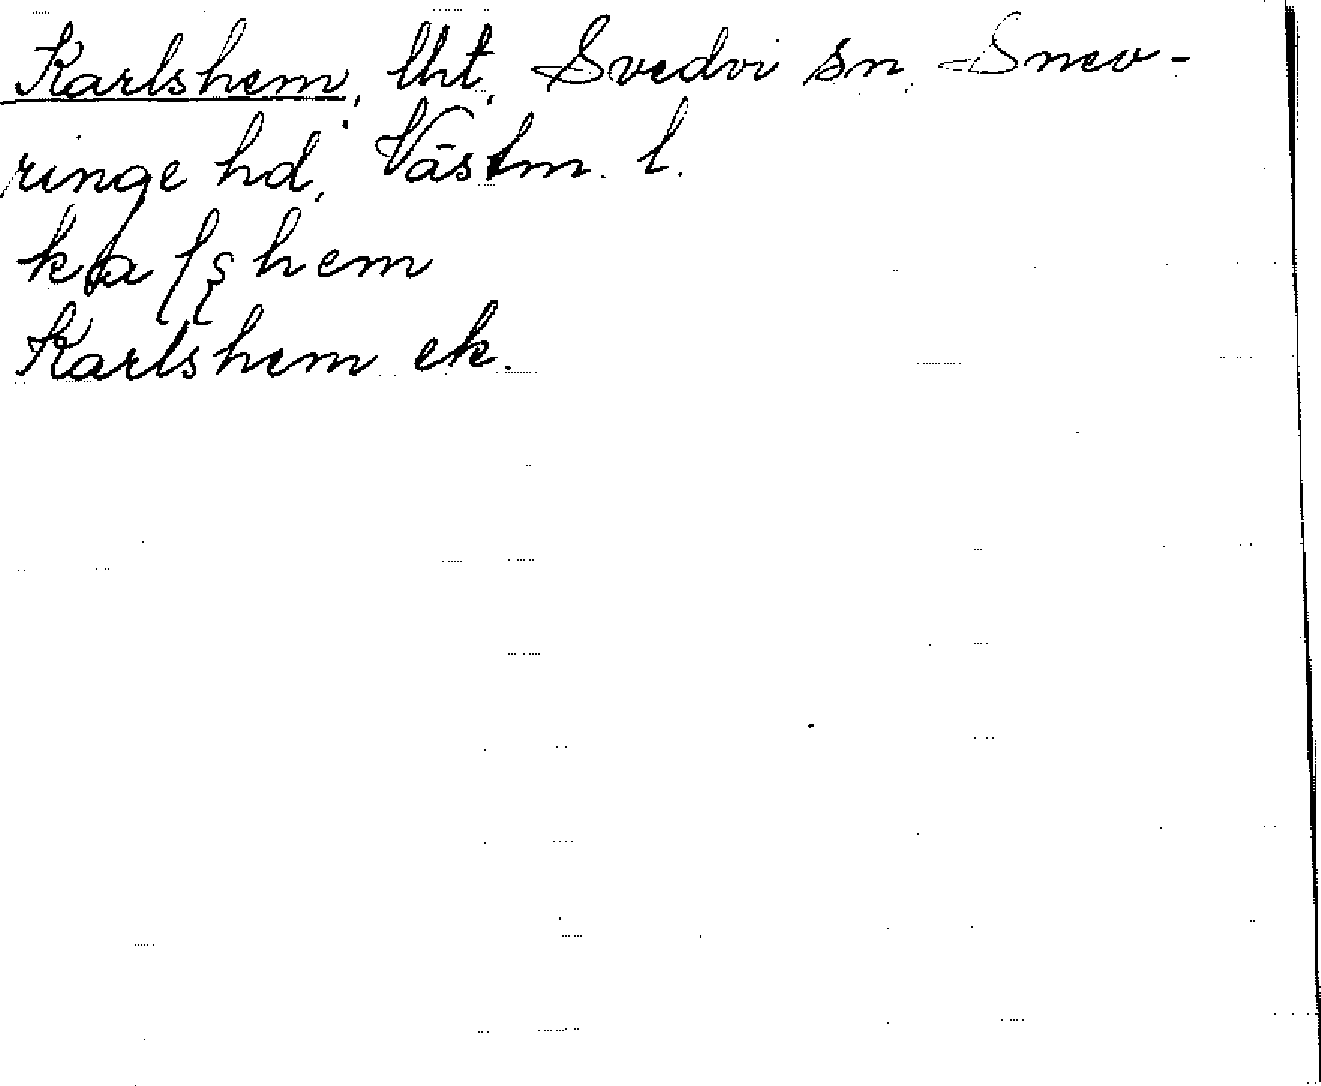 Karlshem, lht, Svedvi sn, Snev-
ringe hd, Västm. l.
Karlshem ek.